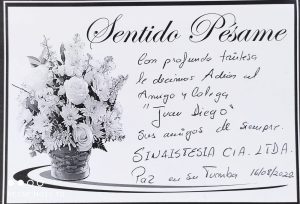 Sentido Pésame
Con profunda tristesa
le decimos Adiós al
Amigo y Colega
"Juan Diego"
sus amigos de siempre.
SINAISTESIA CIA. LTDA.
Paz en su Tumba 16/08/2022